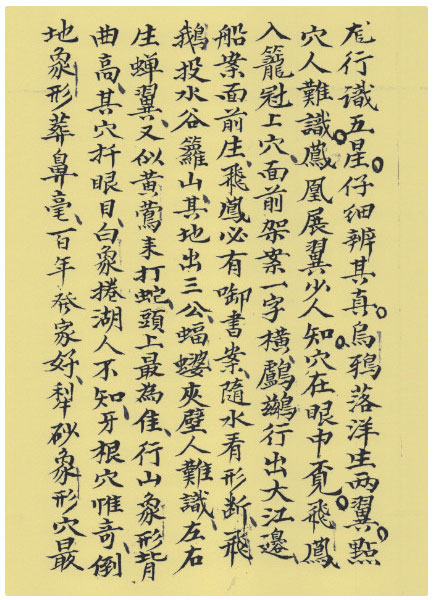 龙行識五星。仔細辨其真。烏鴉落洋生两翼。點
穴人難識。鳳凰展翼少人知。穴在眼中覓。飛鳳
入籠冠上穴、面前架案一字橫、鸕鷀行出大江邊、
船案面前庄、飛鳳必有啣書案、隨水看形断、飛
鵝投水谷籮山、其地出三公、蝙蝼夾壁人難識、左右
生蝉翼、又似黄鶯耒打蛇、頭上最為佳、行山象形背
曲高、其穴扦眼目、白象捲湖人不知、牙根穴惟奇、倒
地象形葬鼻毫、百年發家好、犁砂象形穴最